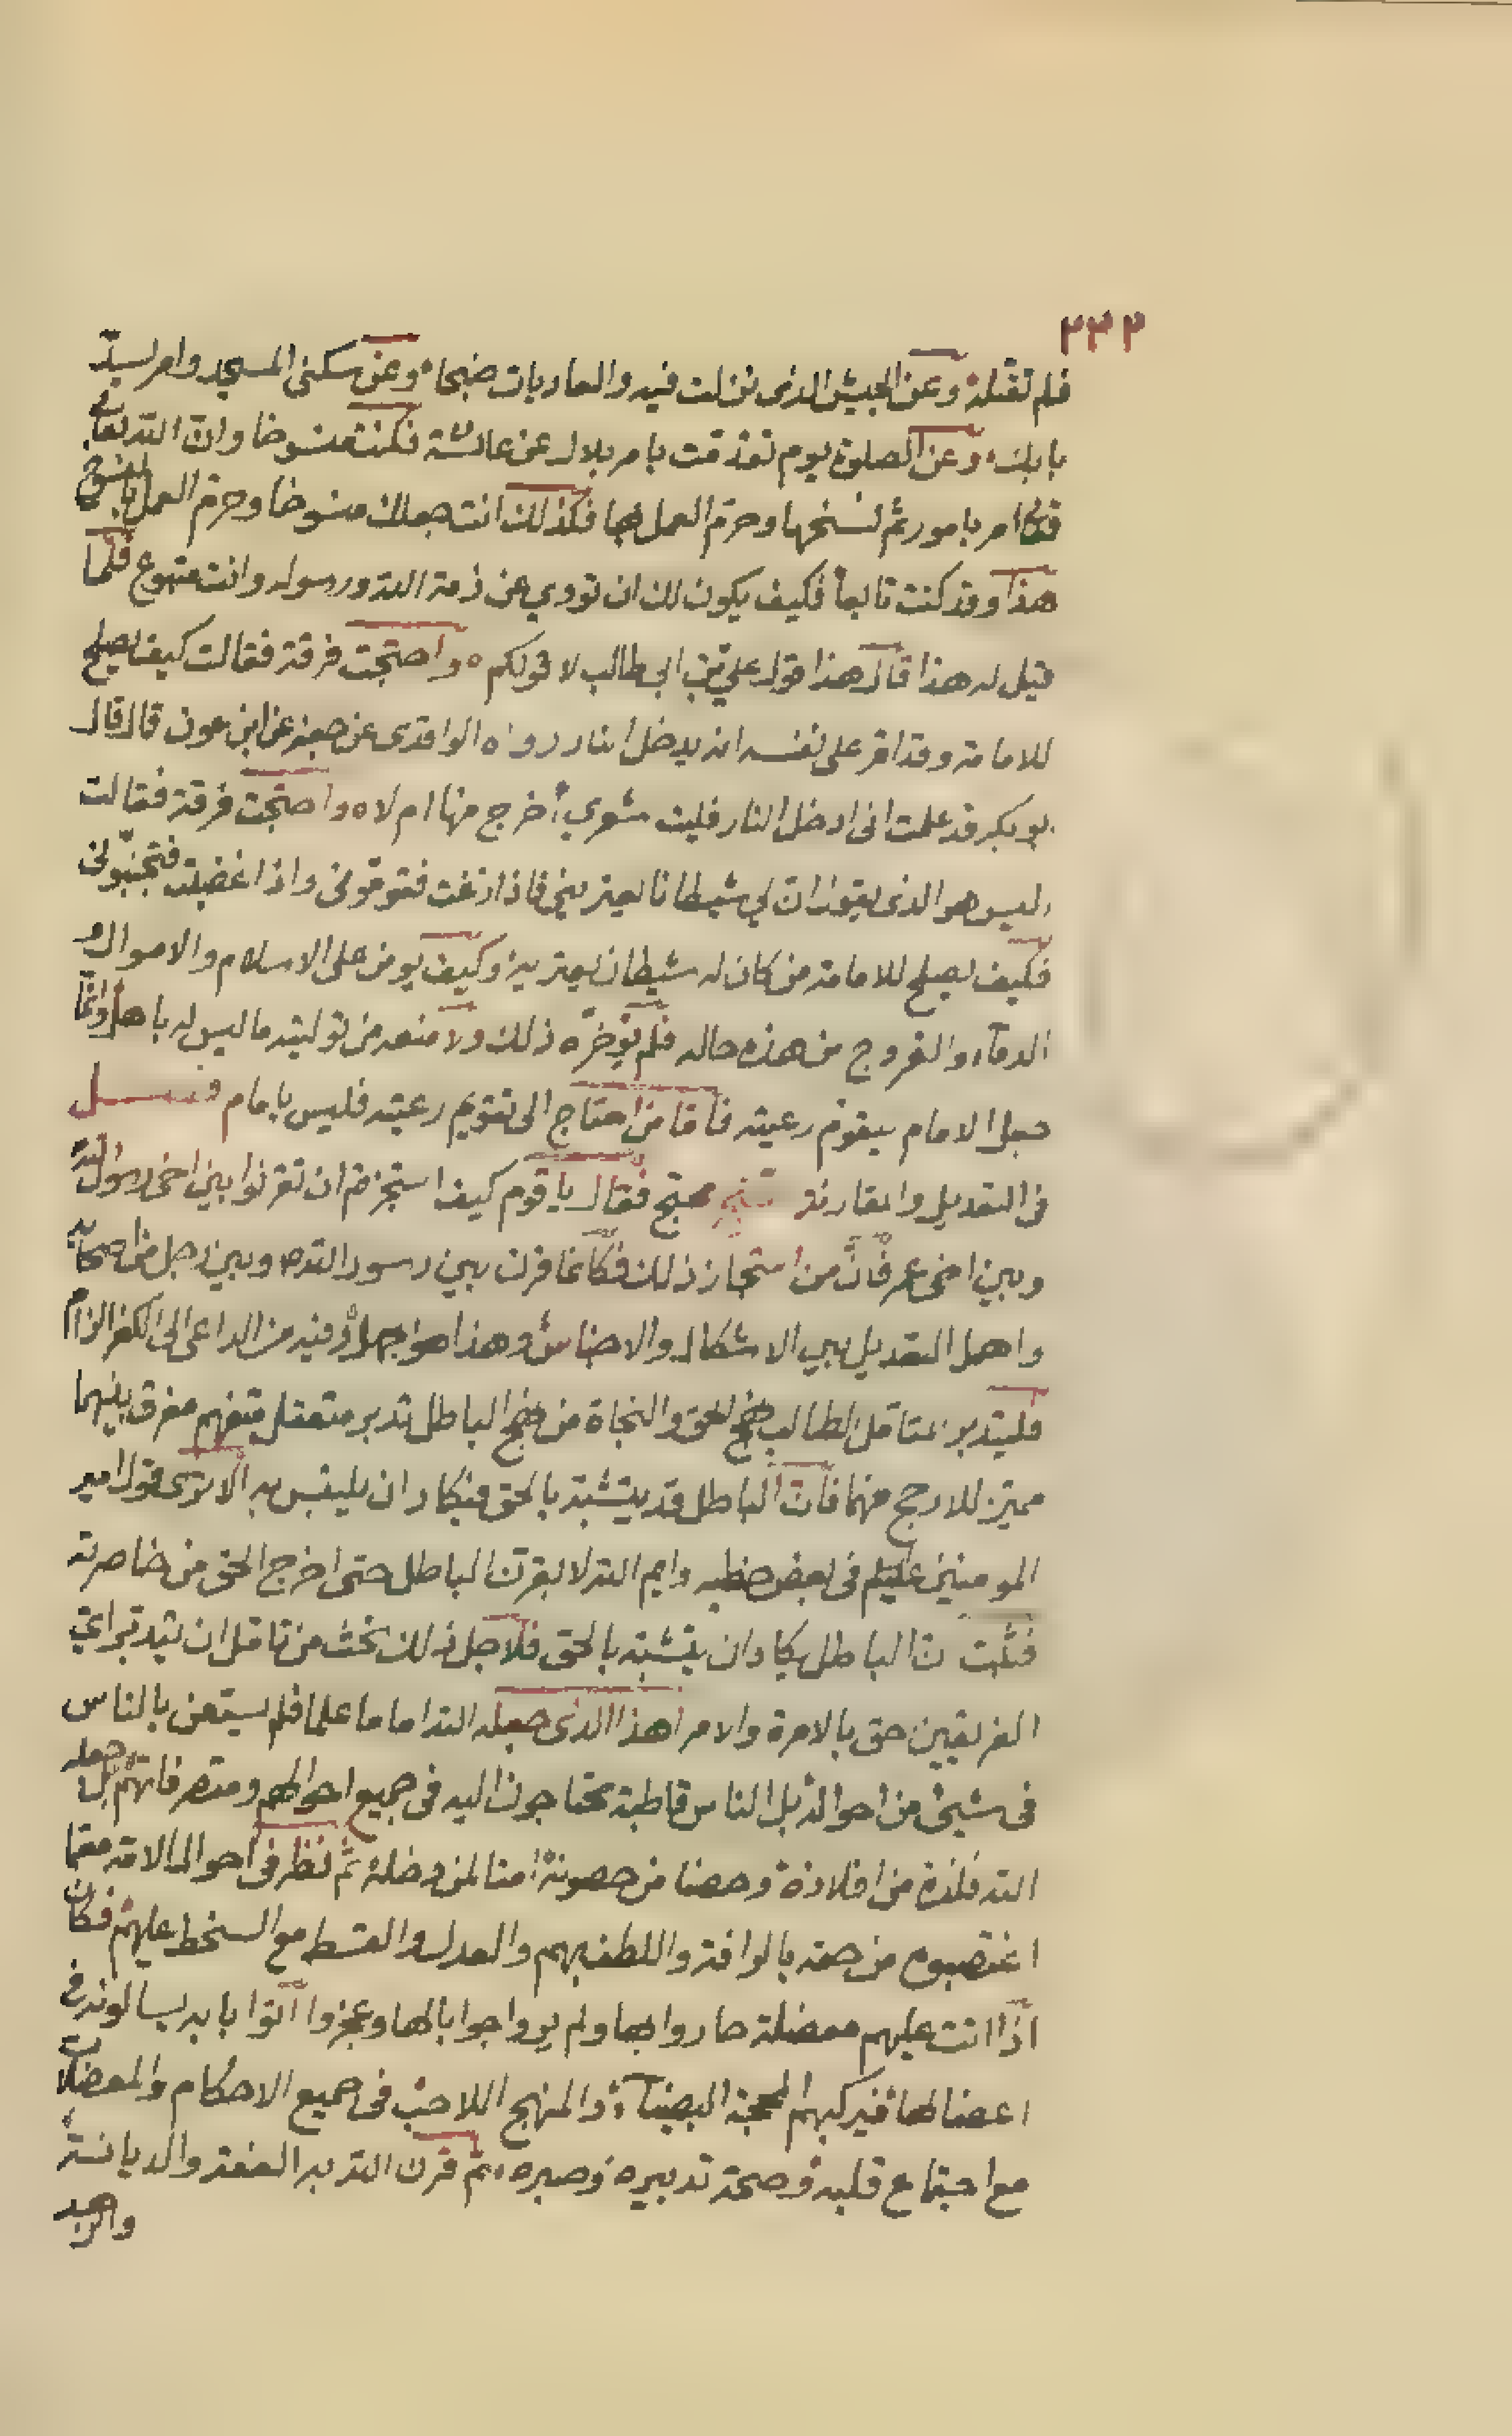 ٢٣٢
فلم تقتله وعن الجيش الذى نزلت فيه والعاديات ضبحا وعن سكنى المسجد وامر بسد
بابك وعن الصلوة يوم تقدمت بامر بلال عن عائشة فكنت منسوخا وان الله تعالى
قد امر بامور ثم نسخها وحرم العمل بها فكذلك انت جعلك منسوخا وحرم العمل بالمنسوخ
هذا وقد كنت تابعا فكيف يكون لك ان تؤدي عن ذمة الله ورسوله وانت متبوع فلما
قيل له هذا قال هذا قول علي بن ابى طالب لا قولكم واحتجت فرقة فقالت كيف يصلح
للامامة وقد اقر على نفسه انه يدخل النار رواه الواقدى عن عن ابن عون قال قال
ابو بكر قد علمت انى ادخل النار فليت شعري أخرج منها ام لا واحتجت فرقة فقالت
اليس هو الذى يقول ان لي شيطانا يعتريني فاذا زغت فقوموني واذا غضبت فتجنبوني
فكيف يصلح للامامة من كان له شيطان يعتريه وكيف يومن على الاسلام والاموال و
الدماء والفروج من هذه حاله فلم ذلك ولا منعه من توليته ما ليس له باهل وانما
جعل الامام ليقوم رعيته فاما من احتاج الى تقويم رعيته فليس بامام فصل
فى التعديل والمقارنة محتج فقال يا قوم كيف استجزتم ان تقرنوا بين اخى رسول الله
وبين اخى عمر فان من استجاز ذلك فكانما قرن بين رسول الله وبين رجل من اصحابه
واهمل التعديل بين الاشكال والاجناس وهذا هو جهل وفيه من الداعى الى الكفر الزام
فليتدبر العاقل الطالب نهج الحق والنجاة من نهج الباطل تدبر متعقل متفهم مفرق بينهما
مميز للارجح منهما فان الباطل قد يتشبه بالحق فيكاد ان يلتبس به الا ترى قول امير
المومنين عليلم فى بعض خطبه وايم الله لابقرن الباطل حتى اخرج الحق من خاصرته
فثبت ان الباطل يكاد ان يتشبه بالحق فلاجل ذلك من تاقل ان يتدبر اي
الفريقين احق بالامرة والامر اهذا الذى جعله الله اماما علما فلم يستعن بالناس
فى شيئ من احواله بل الناس قاطبة يحتاجون اليه فى جميع احوالهم ومتصرفاتهم بل جعله
الله فلذة من افلاذه وحصنا من حصونه امنا لمن دخله ثم نظر فى احوال الامة
اغتصبوه من حقه بالرافة واللطف بهم والعدل والقسط مع السخط عليهم فكان
اذا اتت عليهم معضلة حاروا بها ولم يروا جوابا لها وعجزوا اتوا بابه يسالونه فى
اعضالها فيركبهم المحجة البيضاء والمنهج اللاحب فى جميع الاحكام والمعضلات
مع اجتماع قلبه وصحة تدبيره وصبره ثم قرن الله به العفة والديانة